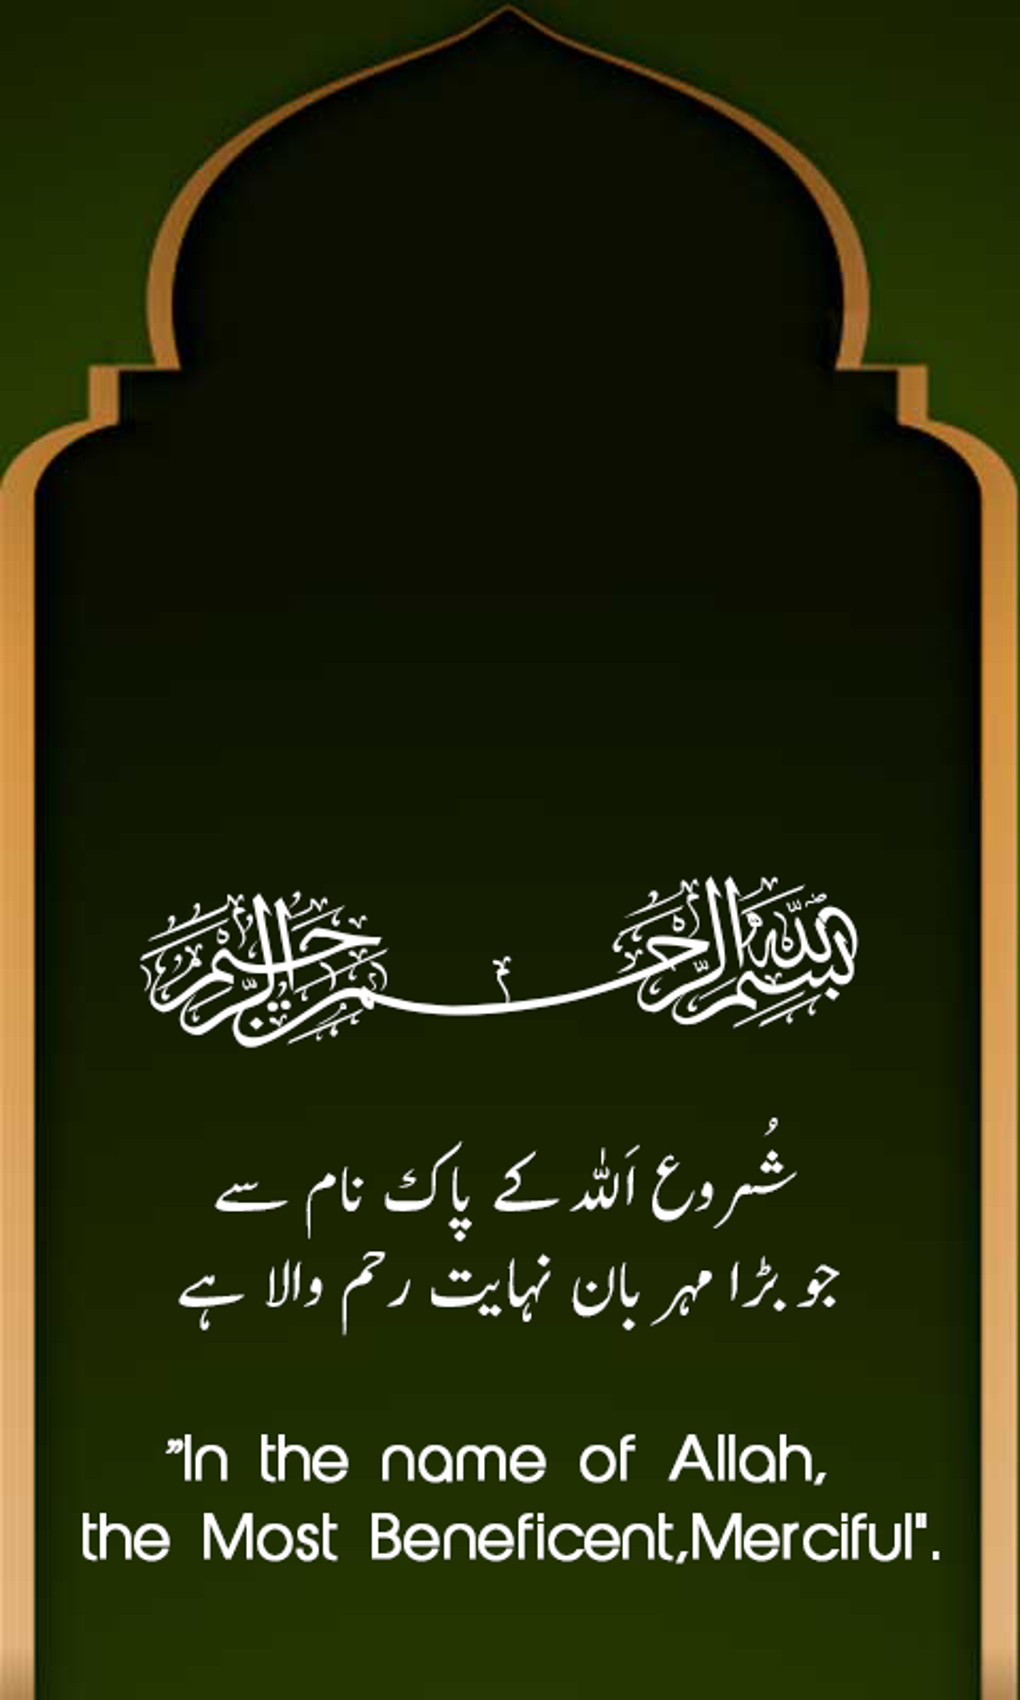 بسم الله الرحمن الرحيم
شُروع اَللہ کے پاک نام سے
جو بڑا مہربان نہایت رحم والا ہے
”In the name of Allah,
the Most Beneficent,Merciful".